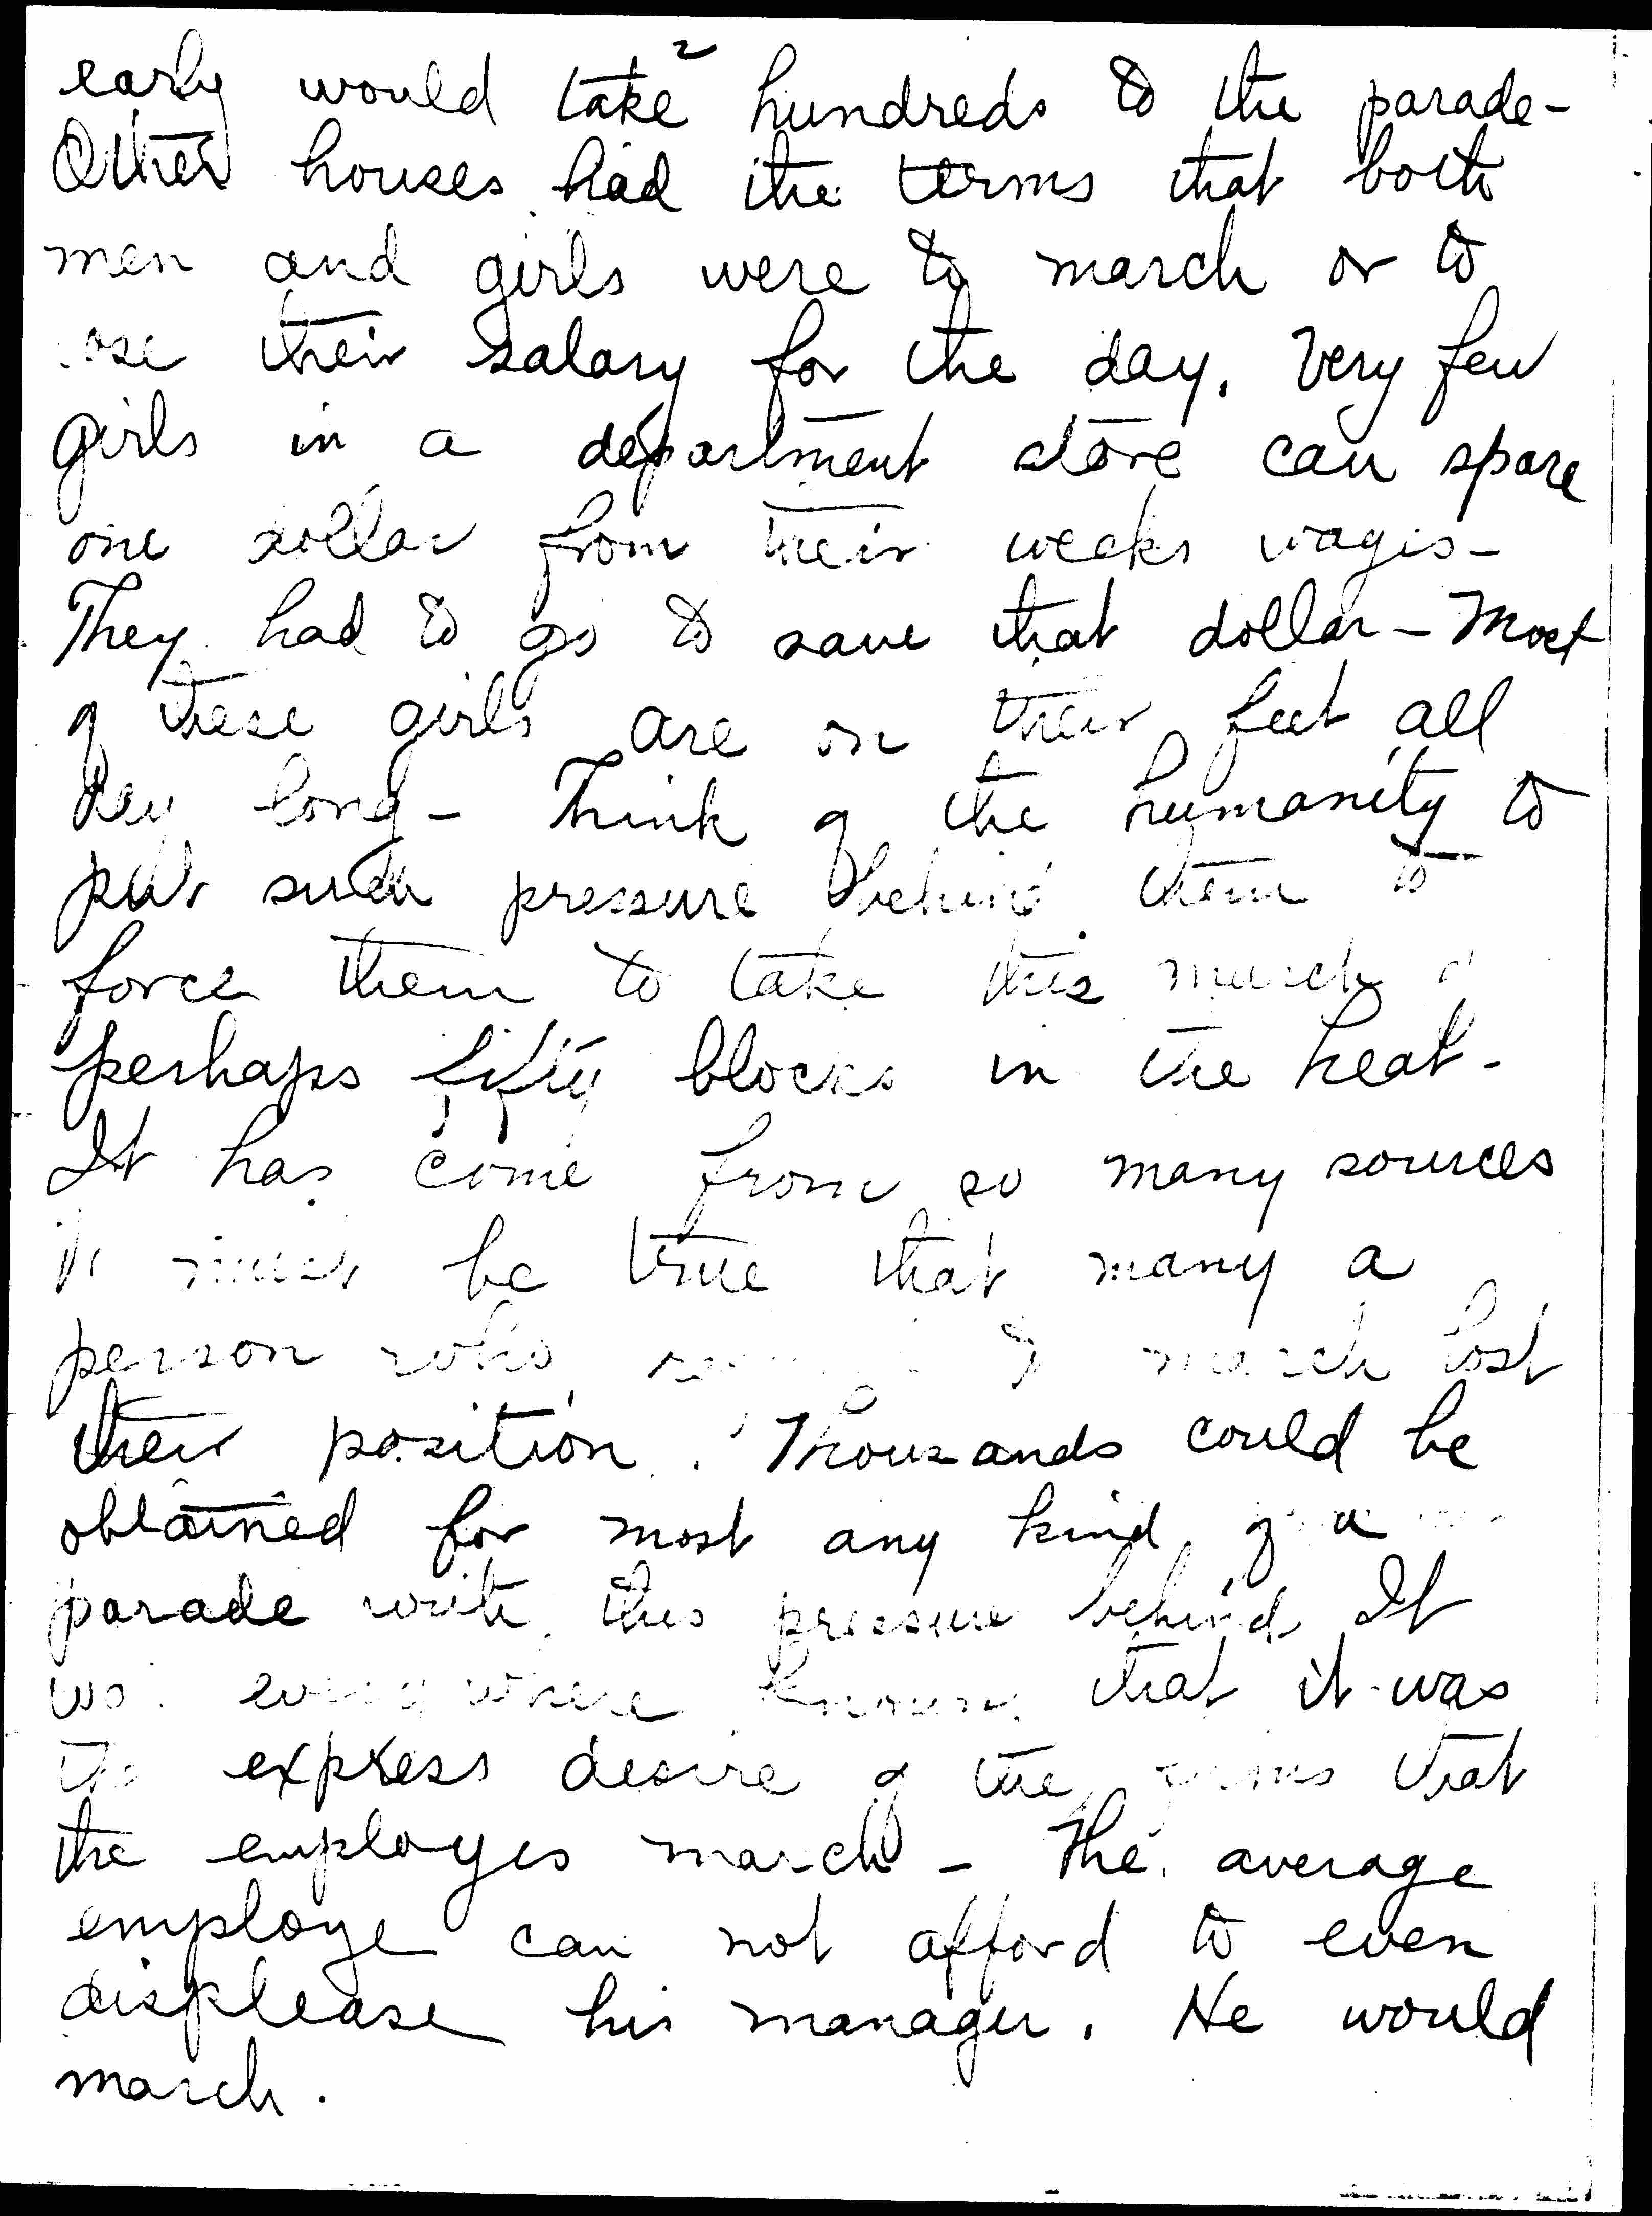 2
early would take hundreds to the parade-
Other houses had the terms that both
men and girls were to march or to
lose their salary for the day. Very few
girls in a department store can spare
one dollar from their weeks wages-
They had to go to save that dollar - Most
of these girls are on their feet all
day long - Think of the humanity to
put such pressure behind them to
force them to take this march of
perhaps fifty blocks in the heat-
It has come from so many sources
it must be true that many a
person who to march lost
their position. Thousands could be
obtained for most any kind of a
parade with this pressure behind. It
was everywhere known that it was
the express desire of the firms that
the employes march - The average
employe can not afford to even
displease his manager. He would
march.